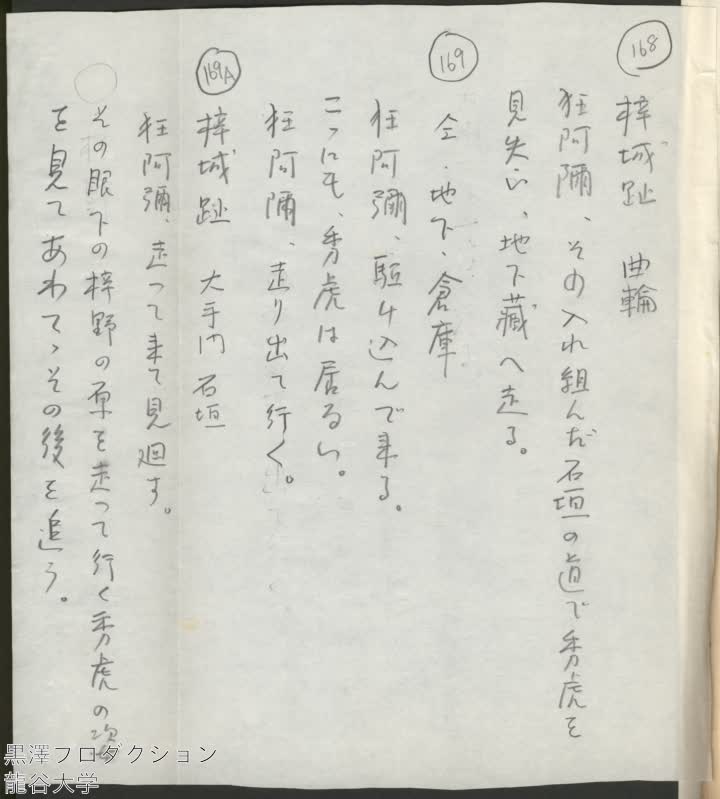 168
梓城趾　曲輪
狂阿彌、その入れ組んだ石垣の道で秀虎を
見失い、地下蔵へ走る。
169
仝・地下・倉庫
狂阿彌、駈け込んで来る。
こゝにも、秀虎は居ない。
狂阿彌、走り出て行く。
169A
梓城趾　大手門　石垣
狂阿彌、走って来て見廻す。
その眼下の梓野の原を走って行く秀虎の姿
を見てあわてゝその後を追う。
黒澤プロダクション
龍谷大学